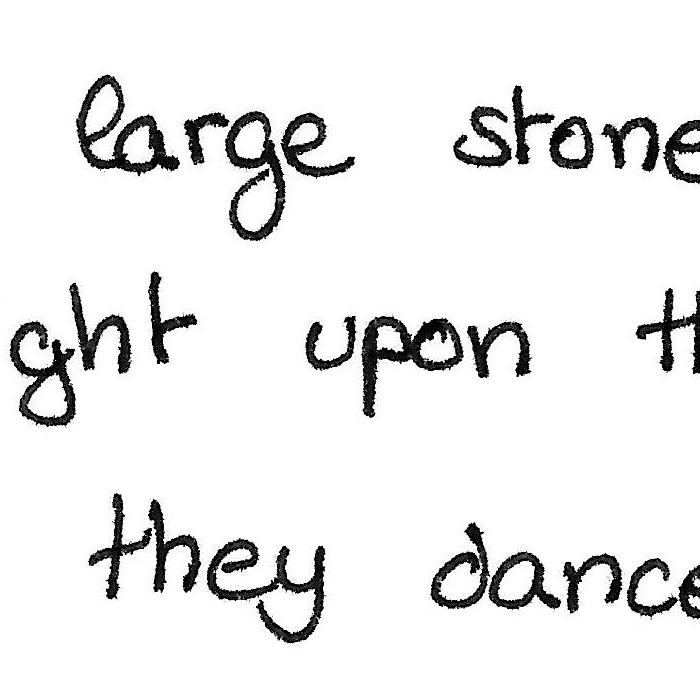 large stone
ght upon th
they dance